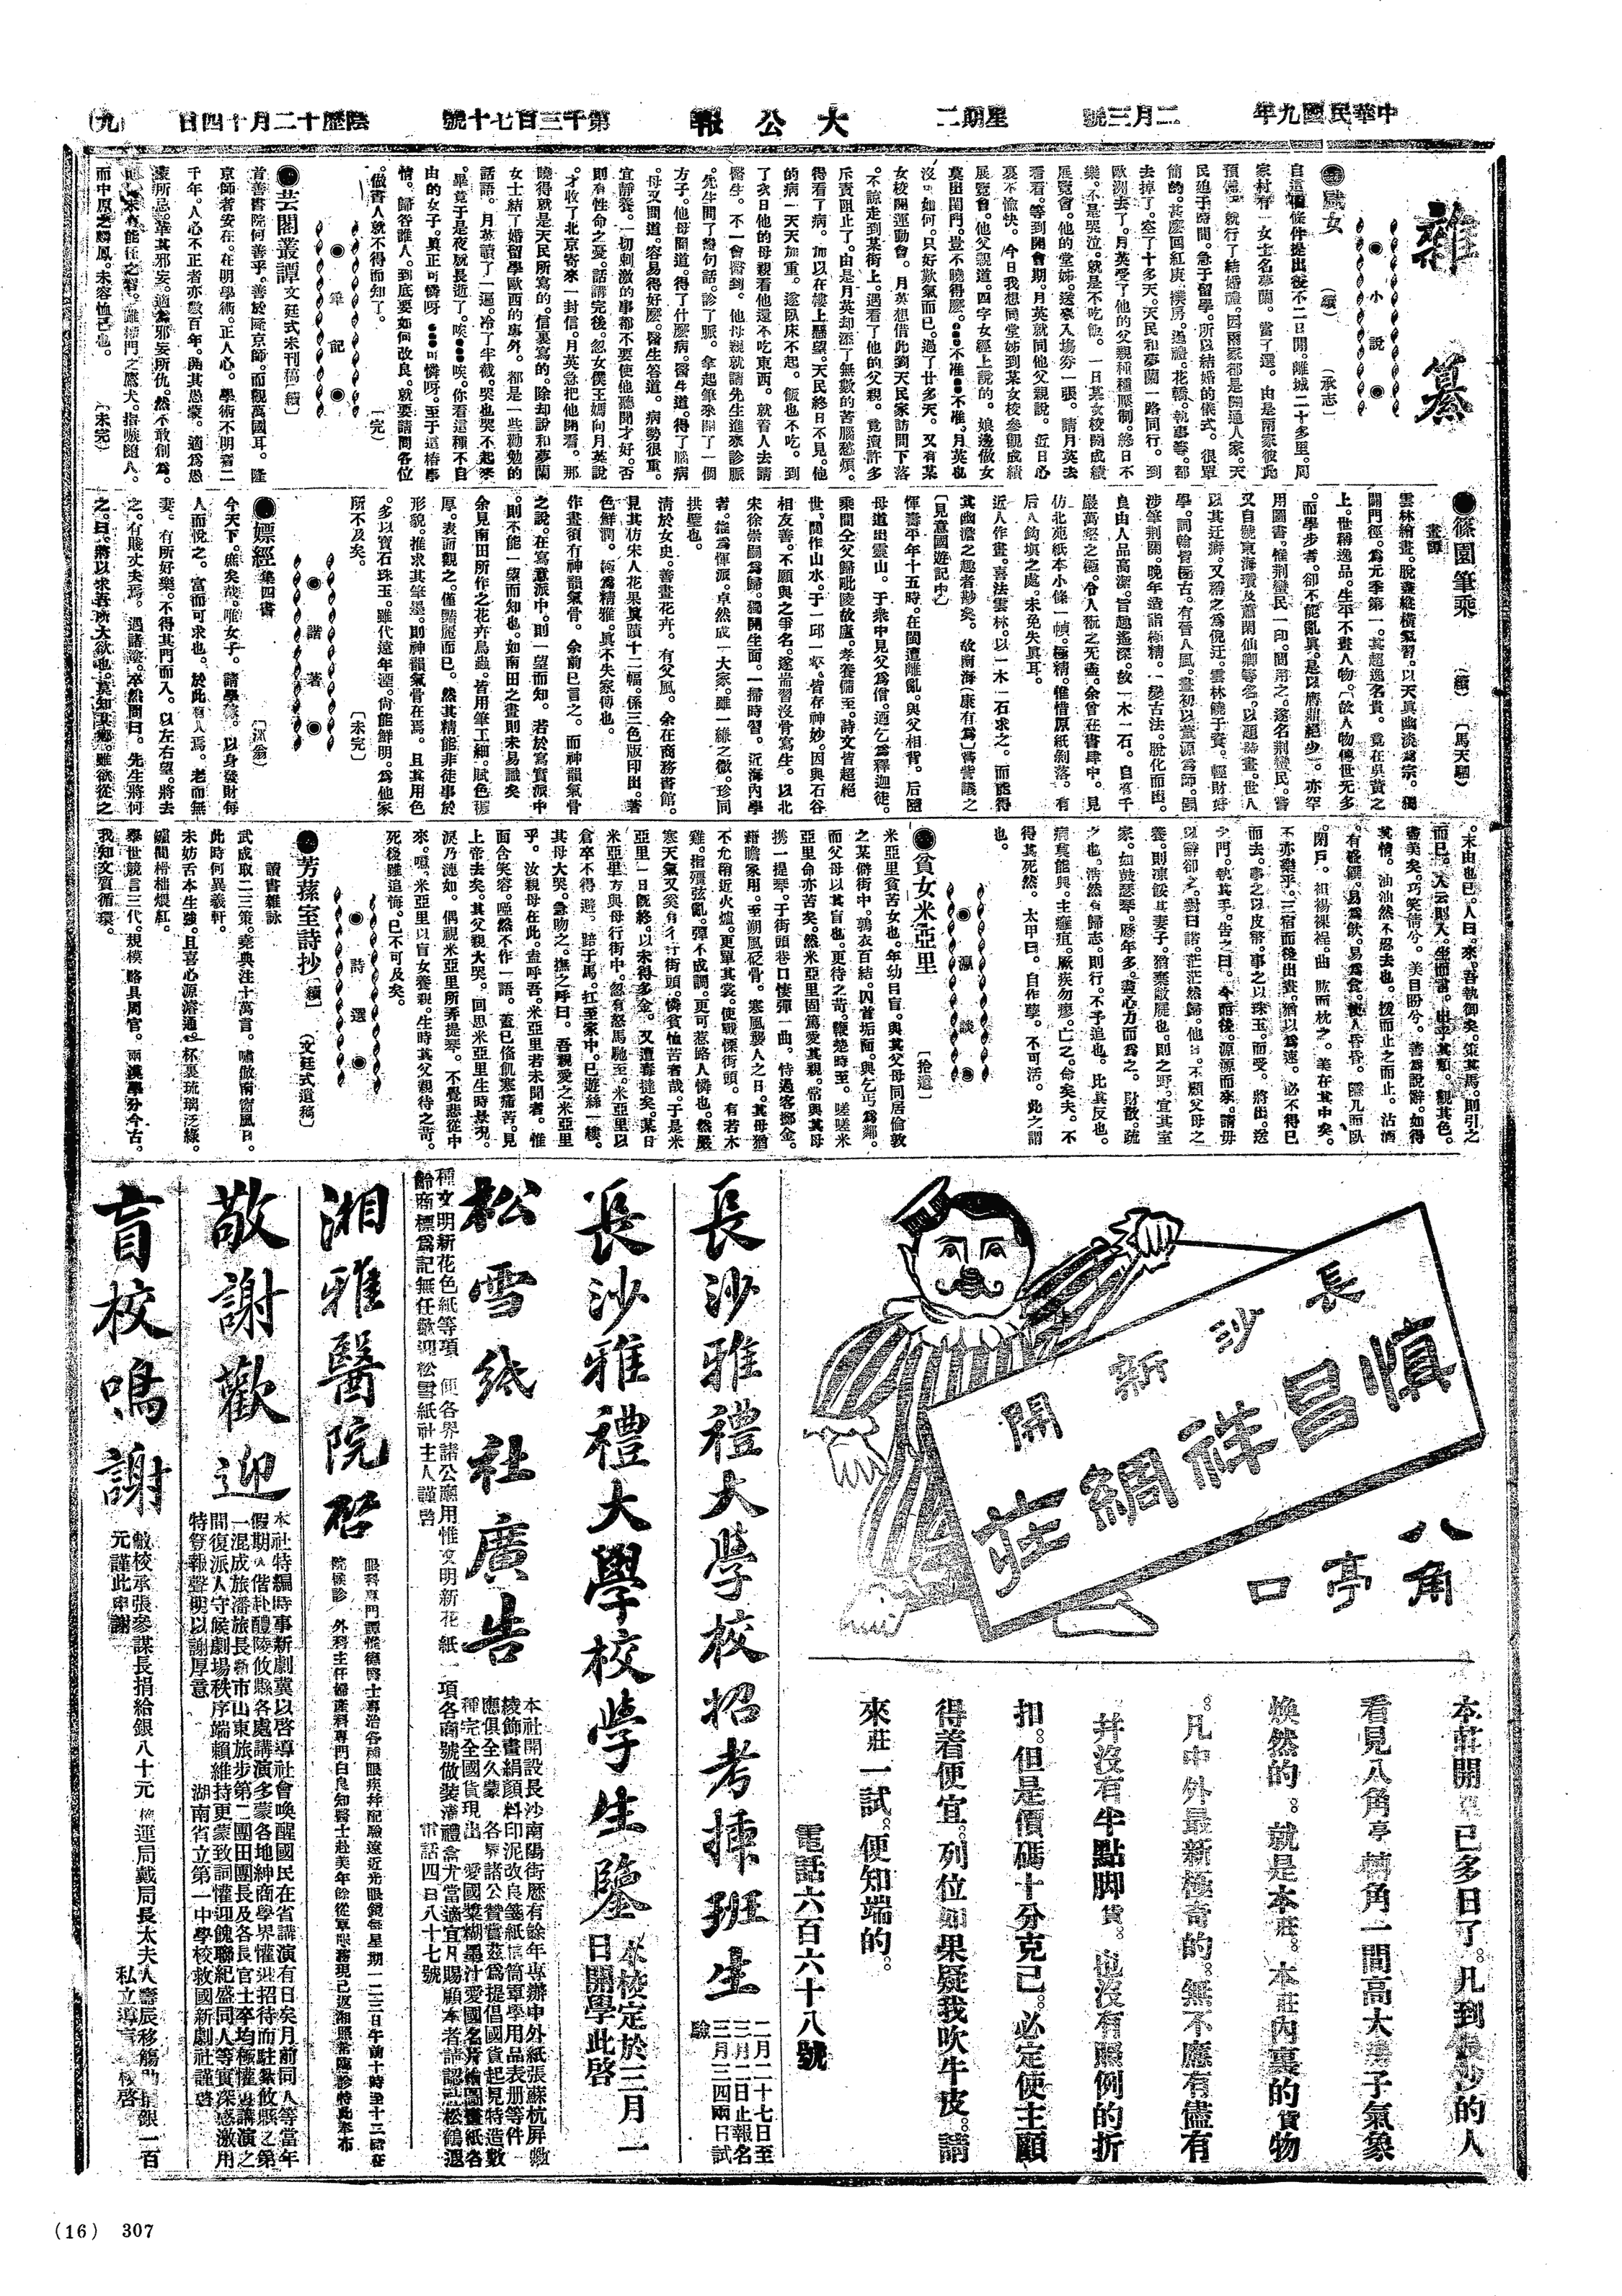 中華民國九年
二月三號
星期二
大公報
第千三百七十號
陰歷十二月十四日
(九)
雜纂
小說
(續)
(承志)
自這個條件提出後不二日開。離城二十多里。周
家村有一女士名夢蘭。當了選。由是兩家彼此
預備。就行了結婚禮。因兩家都是開通人家。天
民迫于時間。急于留學。所以結婚的儀式。很單
簡的。甚麼回紅庚。樸房。過禮。花轎。執事等。都
去掉了。空了十多天。天民和夢蘭一路同行。到
歐洲去了。月英受了他的父親種種壓制。終日不
樂。不是哭泣。就是不吃飯。一日某女校開成績
展覽會。他的堂姊。送來入塲券一張。請月英去
看看。等到開會期。月英就同他父親說。近日心
裏不愉快。今日我想同堂姊到某女校參觀成績
展覽會。他父親道。四字女經上說的。娘邊做女
莫出閨門。豈不曉得麼。●●●不准●●●不准。月英也
沒可如何。只好歎氣而已。過了廿多天。又有某
女校開運動會。月英想借此到天民家訪問下落
。不諒走到某街上。遇着了他的父親。竟費許多
斥責阻止了。由是月英却添了無數的苦腦愁煩。
得着了病。加以在樓上懸望。天民終日不見。他
的病一天天加重。遂臥床不起。飯也不吃。到
了次日他的母親看他還不吃東西。就着人去請
醫生。不一會醫到。他母親就請先生進來診脈
。先生問了幾句話。診了脈。拿起筆來開了一個
方子。他母問道。得了什麼病。醫生道。得了腦病
。母又問道。容易得好麼。醫生答道。病勢很重。
宜靜養。一切刺激的事都不要使他聽聞才好。否
則有性命之憂。話講完後。忽女僕王媽向月英說
。才收了北京寄來一封信。月英急把他開看。那
曉得就是天民所寫的。信裏寫的。除却說和夢蘭
女士結了婚留學歐西的事外。都是一些勸勉的
話語。月英讀了一遍。冷了半截。哭也哭不起來
。畢竟于是夜就長逝了。唉●●●唉。你看這種不自
由的女子。眞正可憐呀●●●可憐呀。至于這樁事
情。歸咎誰人。到底要如何改良。就要請問各位
。做書人就不得而知了。
(完)
筆記
●芸閣叢譚 文廷式未刊稿(續)
首善書院何善乎。善於在京師。而觀萬國耳。隆
京師者安在。在明學術。正人心。學術不明者二
千年。人心不正者亦數百年。開其愚蒙。適爲愚
蒙所忌。革其邪妄。適爲邪妄所仇。然不敢創爲。
而中原之麟鳳。未容恤已也。
(未完)
●篠園筆乘
(續)
(馬天驥)
畫譚
雲林繪畫。脫盡縱橫氣習。以天眞幽淡爲宗。獨
闢門徑。爲元季第一。其超逸名貴。竟在吳黃之
上。世稱逸品。生平不畫人物。故人物傳世无多
。而學步者。卻不能亂眞。是以鷹鼎絕少。亦罕
用圖書。惟荊蠻民一印。間用之。遂名荊蠻民。嘗
又自號東海瓚及蕭閑仙卿等名。以題詩畫。世人
以其迂辟。又稱之爲倪迂。雲林饒于資。輕財好
學。詞翰皆極古。有晉人風。畫初以董源爲師。頗
涉筆荊關。晚年造詣極精。一變古法。脫化而出。
良由人品高潔。旨趣遙深。故一木一石。自有千
巖萬壑之極。令人翫之无盡。余曾在書肆中。見
仿北苑紙本小條一幀。極精。惟惜原紙剝落。有
后人鈎填之處。未免失眞耳。
近人作畫。喜法雲林。以一木一石求之。而能得
其幽澹之趣者尠矣。故南海(康有爲)嘗嘗議之
(見意國遊記中)
惲壽平年十五時。在閩遭離亂。與父相背。后隨
母道出靈山。于衆中見父爲僧。適乞爲釋迦徒。
乘間令父歸毗陵故廬。孝養備至。詩文皆超絕
世。間作山水。于一邱一壑。皆存神妙。因與石谷
相友善。不願與之爭名。遂耑習沒骨寫生。以北
宋徐崇嗣爲歸。獨開生面。一掃時習。近海內學
者。指爲惲派。卓然成一大家。雖一緣之微。珍同
拱璧也。
淸於女史。善畫花卉。有父風。余在商務書館。
見其枋宋人花果眞蹟十二幅。係三色版印出。著
色鮮潤。極爲精雅。眞不失家傳也。
作畫須有神韻氣骨。余前已言之。而神韻氣骨
之說。在寫意派中。則一望而知。若於寫實派中
。則不能一望而知也。如南田之畫則未易識矣
余見南田所作之花卉鳥蟲。皆用筆工細。賦色穠
厚。表而觀之。僅豔麗而已。然其精能非徒事於
形貌。推求其筆墨。則神韻氣骨在焉。且其用色
。多以寶石珠玉。雖代遠年湮。尙能鮮明。爲他家
所不及矣。
(未完)
諧著
●嫖經 集四書
今天下。庶矣哉。唯女子。諸學養。以身發財每
人而悅之。富而可求也。於此有人焉。老而無
妻。有所好樂。不得其門而入。以左右望。將去
之。有賤丈夫焉。遇諸塗。卒然問曰。先生將何
之。曰。將以求吾所大欲也。莫知其鄉。雖欲從之
。末由也已。人曰。來。吾執御矣。策其馬。則引之
不亦樂乎。三宿而後出晝。猶以爲速。必不得已
而去。事之以皮幣。事之以珠玉。而受。將出。送
之門。執其手。告之曰。今而後。源源而來。請毋
以辭卻之。對曰諾。茫茫然歸。他日。不顧父母之
養。則凍餒其妻子。猶棄敝屣也。則之野。宜其室
家。如鼓瑟琴。歷年多。盡心力而爲之。財散。疏
之也。浩然有歸志。則行。不予追也。比其反也。
得其死然。太甲曰。自作孽。不可活。此之謂
也。
瀛談
●貧女米亞里
(拾遺)
米亞里貧苦女也。年幼目盲。與其父母同居倫敦
之某僻街中。鶉衣百結。囚首垢面。與乞丐爲鄰。
而父母以其盲也。更待之苛。鞭楚時至。嗟嗟米
亞里命亦苦矣。然米亞里固篤愛其親。常與其母
携一提琴。于街頭巷口悽彈一曲。恃過客擲金。
藉贍家用。至朔風砭骨。寒風襲人之日。其母猶
不允稍近火爐。更單其裳。使戰慄街頭。有若木
雞。指殭弦亂。彈不成調。更可惹路人憐也。然嚴
寒天氣又奚有行街頭。憐貧恤苦者哉。于是米
亞里一日旣終。以未得多金。又遭毒撻矣。某日
米亞里方與母行街中。忽有怒馬馳至。米亞里以
倉卒不得避。踣于馬。扛至家中。已遊絲一縷。
其母大哭。急吻之。撫之呼曰。吾親愛之米亞里
乎。汝親母在此。盍呼吾。米亞里若未聞者。惟
面含笑容。啞然不作一語。蓋已脩飢寒痛苦。見
上帝去矣。其父親大哭。回思米亞里生時景况。
淚乃漣如。偶視米亞里所弄提琴。不覺悲從中
來。噫。米亞里以盲女養親。生時其父親待之苛。
死後雖追悔。已不可及矣。
詩選
●芳蓀室詩抄(續)
(文廷式遺稿)
讀書雜詠
武成取二三策。堯典注十萬言。嘯傲南窗風日。
此時何異羲軒。
未妨舌本生強。且喜心源溶通。一杯裏琉璃泛綠。
爐間榾柮煨紅。
舉世競言三代。規模略具周官。兩漢學分今古。
我知文質循環。
長沙新開
慎昌祥綢莊
八角亭口
本莊開幕已多日了。凡到長沙的人
看見八角亭轉角一間高大房子氣象
煥然的。就是本莊。本莊內裏的貨物
。凡中外最新極奇的。無不應有儘有
幷沒有半點脚貨。也沒有照例的折
扣。但是價碼十分克己。必定使主顧
得着便宜。列位如果疑我吹牛皮。請
來莊一試。便知端的。
電話六百六十八號
長沙雅禮大學校招考揷班生
二月二十七日至
三月二日止報名
三月三四兩日試
驗
長沙雅禮大學校學生鑒
本校定於三月一
日開學此啓
松雪紙社廣告
本社開設長沙南陽街歷有餘年專辦中外紙張蘇杭屏聯
綾飾畫絹顏料印泥改良箋紙信筒軍學用品表册等件
應俱全久蒙各界諸公賞嘗茲爲提倡國貨起見特造數
種完全國貨現出愛國漿糊墨汁愛國名片繪圖畫紙各
種文明新花色紙等項便各界諸公應用惟文明新花紙一項各商號做裝潢禮盒尤當適宜凡賜顧本者請認社松鶴遐
齡商標爲記無任歡迎松雪紙社主人謹啓
電話四百八十七號
湘雅醫院啓
眼科專門譚惟德醫士專治各種眼疾幷配驗遠近光眼鏡每星期一二三日午前十時至十二時在
院候診外科主任婦產科專門白良知醫士赴美年餘從軍服務現已返湘照常臨診特此奉布
敬謝歡迎
本社特編時事新劇冀以啓導社會喚醒國民在省講演有日矣月前同人等當年
假期人偕赴醴陵攸縣各處講演多蒙各地紳商學界懽迎招待而駐紮攸縣之第
一混成旅潘旅長新市山東旅步第二團田團長及各長官士卒均極懽迎講演之
間復派人守候劇場秩序端賴維持更蒙致詞懽迎餽聯紀盛同人等實深感激用
特登報聲明以謝厚意
湖南省立第一中學校救國新劇社謹啓
盲校鳴謝
敝校承張參謀長捐給銀八十元榷運局戴局長太夫人壽辰移觴助捐銀一百
元謹此申謝
私立導盲學校啓
(16) 307